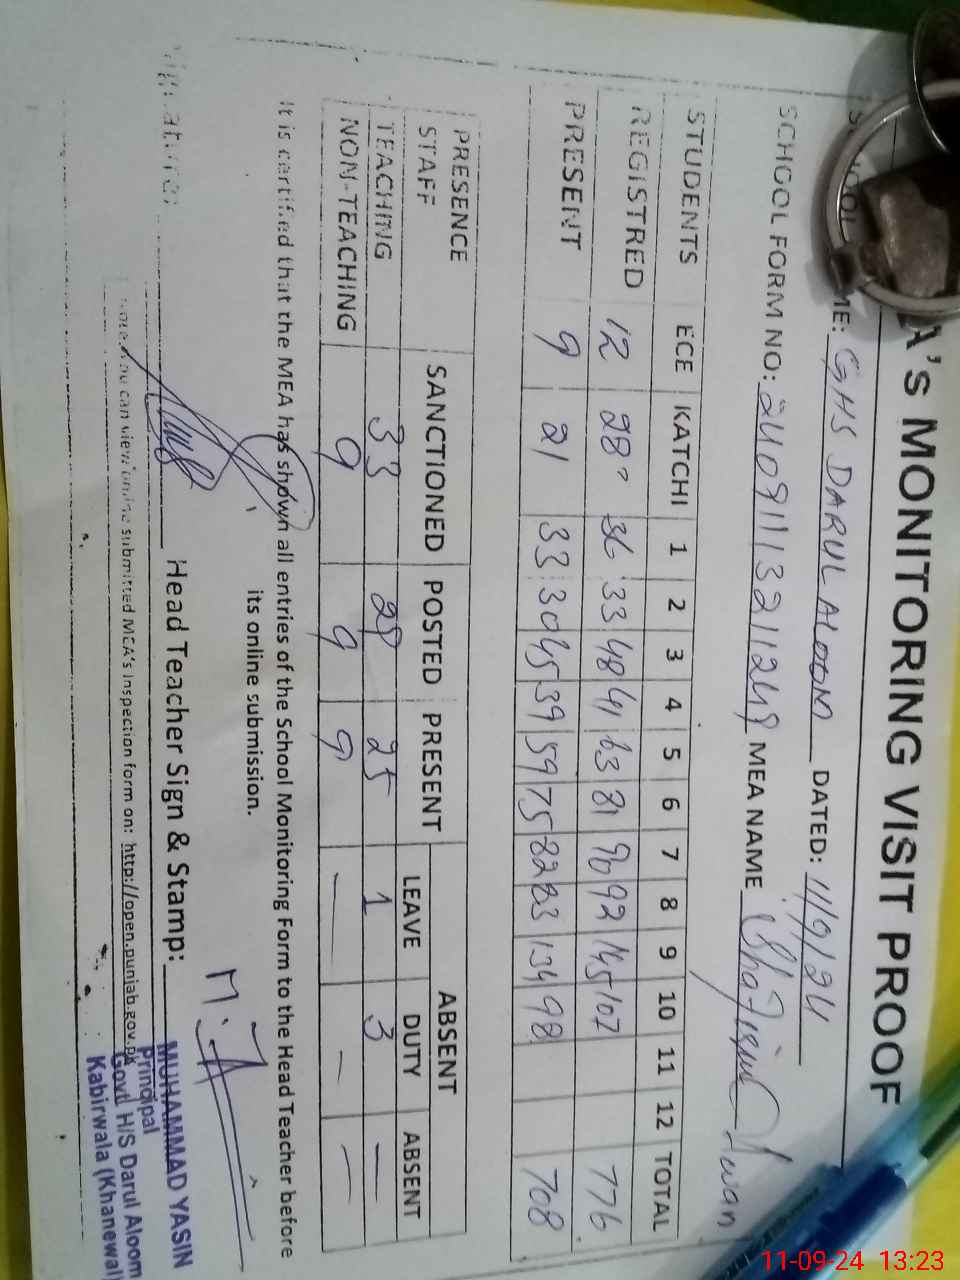 A's MONITORING VISIT PROOF
ME: GHS DARUL ALOOM DATED: 11/9/24
SCHOOL FORM NO: MEA NAME Awan
STUDENTS ECE KATCHI 1 2 3 4 5 6 7 8 9 10 11 12 TOTAL
REGISTRED 12 28 36 33 48 41 63 81 90 92 145 107 776
PRESENT 9 21 33 30 45 39 59 75 82 83 134 98 708
PRESENCE SANCTIONED POSTED PRESENT ABSENT
STAFF LEAVE DUTY ABSENT
TEACHING 33 29 25 1 3 —
NON-TEACHING 9 9 9 — — —
It is certified that the MEA has shown all entries of the School Monitoring Form to the Head Teacher before
its online submission.
Head Teacher Sign & Stamp:
can view online submitted MEA's Inspection form on: http://open.punjab.gov.pk
MUHAMMAD YASIN
Principal
Govt. H/S Darul Aloom
Kabirwala (Khanewal)
11-09-24 13:23